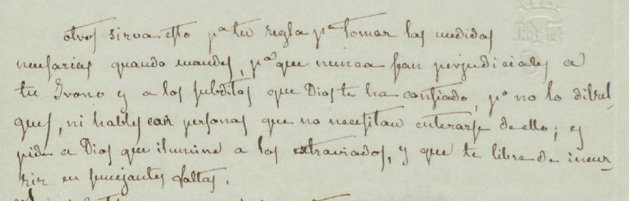 otros sirva esto pª tu regla pª tomar las medidas
nesesarias quando mandes, pª que nunca sean perjudiciales a
tu Trono y a los subditos que Dios te ha confiado, pº no lo dibul-
gues, ni hables con personas que no nesesitan enterarse de ello; y
pide a Dios que ilumine a los extraviados, y que te libre de incur-
rir en semejantes faltas.